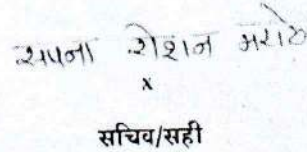 सपना रोशन मराठे
x
सचिव/सही